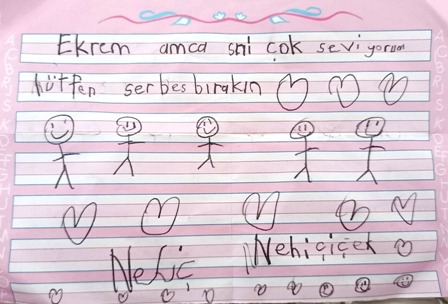 Ekrem amca sni çok seviyorum
lütfen serbesbırakın
Nehiç Nehiçiçek